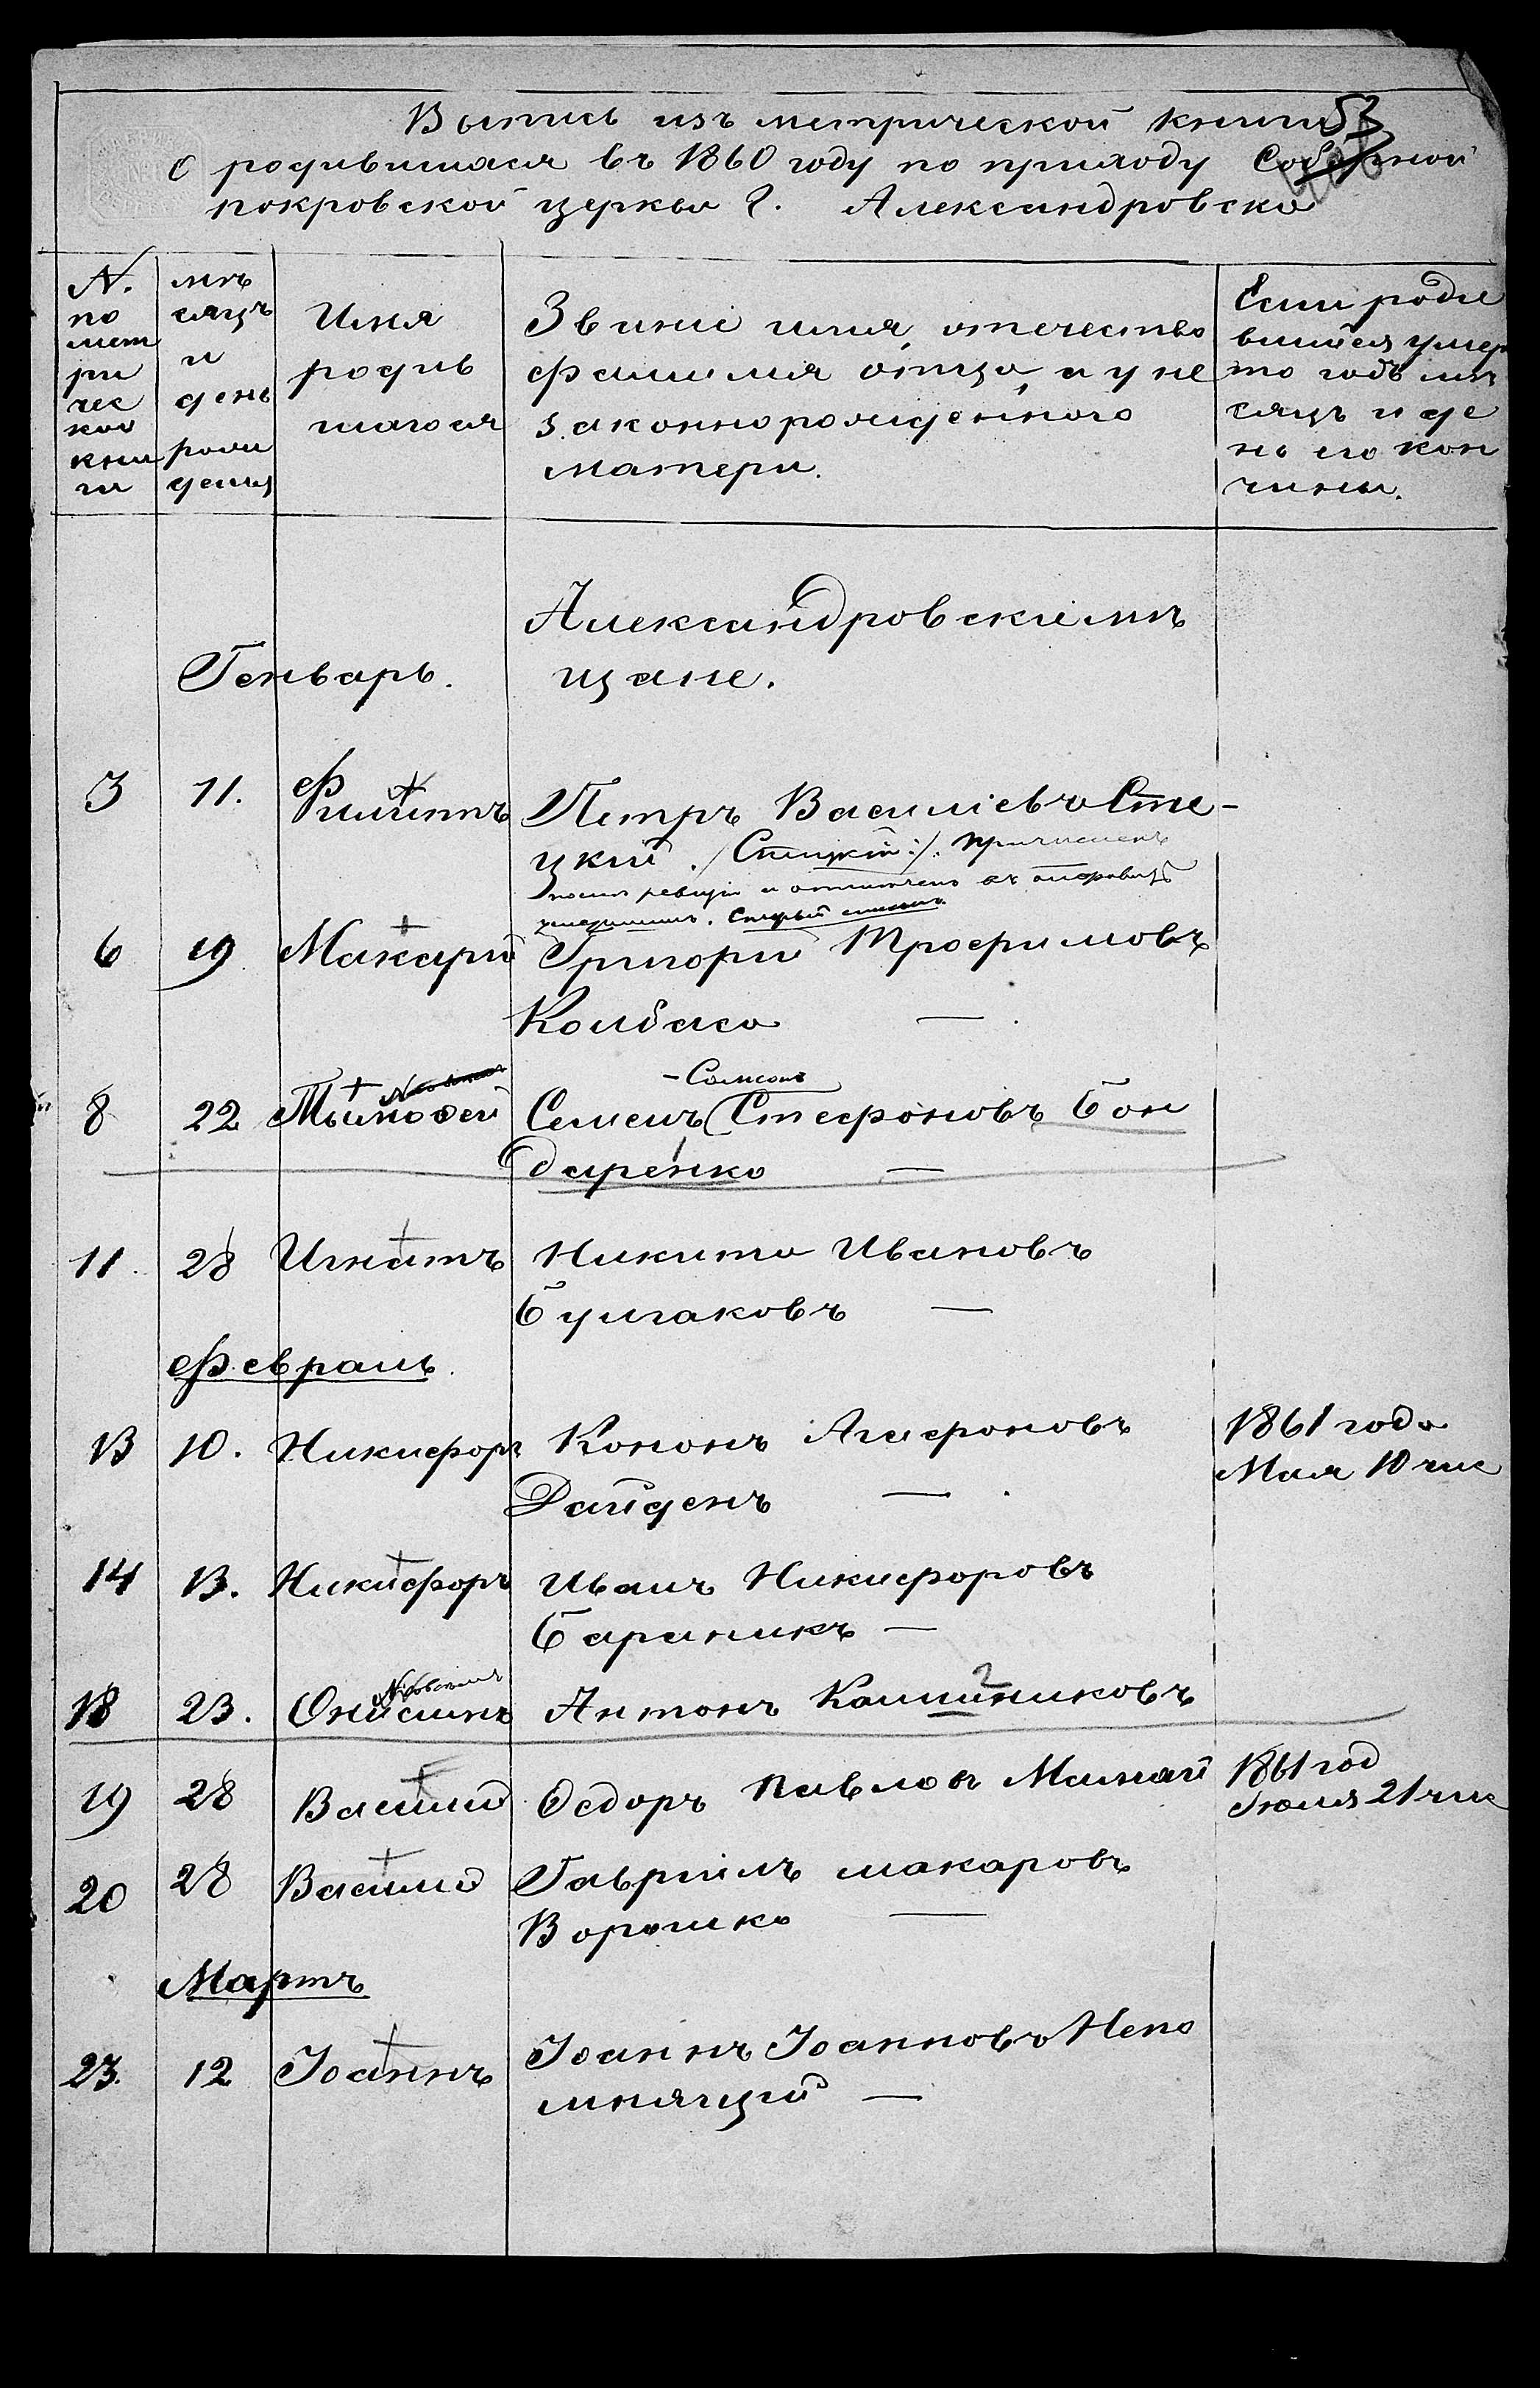 Выпись изъ метрической книги 53
о родившихся въ 1860 году по приходу Соборной
покровской церкви г. Александровска
№.
по
мет
ри
чес
кой
кни
ги
мѣ
сяцъ
и
день
рож
денія
Имя
родив
шагося
Званіе имя, отечество
фамилія отца, и у не
законнорожденного
матери.
Если роди
вшийся умер
то годъ мѣ
сяцъ и де
нь его кон
чины.
Александровскіе мѣ
щане.
Генварь.
3 11. Филипъ Петръ Василіевъ Сте-
цкий. /Стицкій:/. Причисленъ
послѣ ревизіи и
умершимъ. Старый
6 19 Макарий Григорий Трофимовъ
Колбаса —.
– Самсонъ
8 22 Тымофей Семенъ (Стефановъ Бон
даренко —
11. 28 Игнатъ Никита Ивановъ
Булгаковъ —
Февраль.
13 10. Никифоръ Кононъ Агафоновъ 1861 года
Дайденъ —. Мая 10 чис
14 13. Никифоръ Иванъ Никифоровъ
Бараникъ —
18 23. Онисимъ Антонъ Калиниковъ
19 28 Василий Федоръ Павловъ Мамай 1861 год
Июля 21 чис
20 28 Василий Гавриилъ макаровъ
Ворошко —
Мартъ
23. 12 Іоаннъ Іоаннъ Іоанновъ Непо
мнящий —